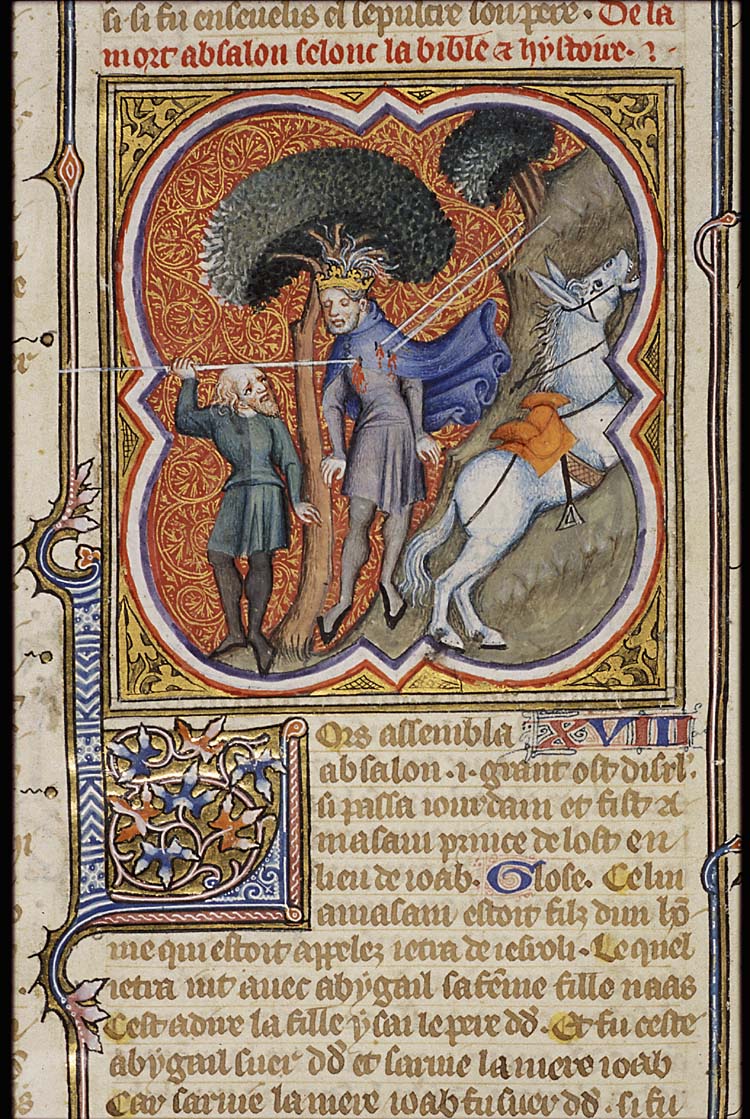 si si fu enseuelis el sepulcre son pere. De la
mort absalon selonc la bible & hystoire.
Lors assembla XVIII
absalon .i. grant ost disrl'.
si passa iourdain et fist a
masam prince de lost en
lieu de ioab. Glose. Celui
amasam estoit filz dun hō
me qui estoit appelez ietra de iesroli. Le quel
ietra iut auec abygail sa feme fille naas
Cest a dire la fille ysai le pere dd. Et fu ceste
abygail suer dd et saruie la mere ioab
Car saruie la mere ioab fu suer dd. si fu